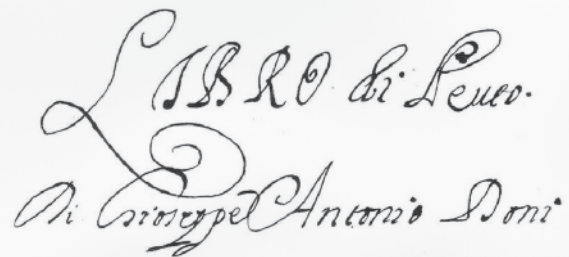 LIBRO di Leuto.
Di Gioseppe Antonio Doni